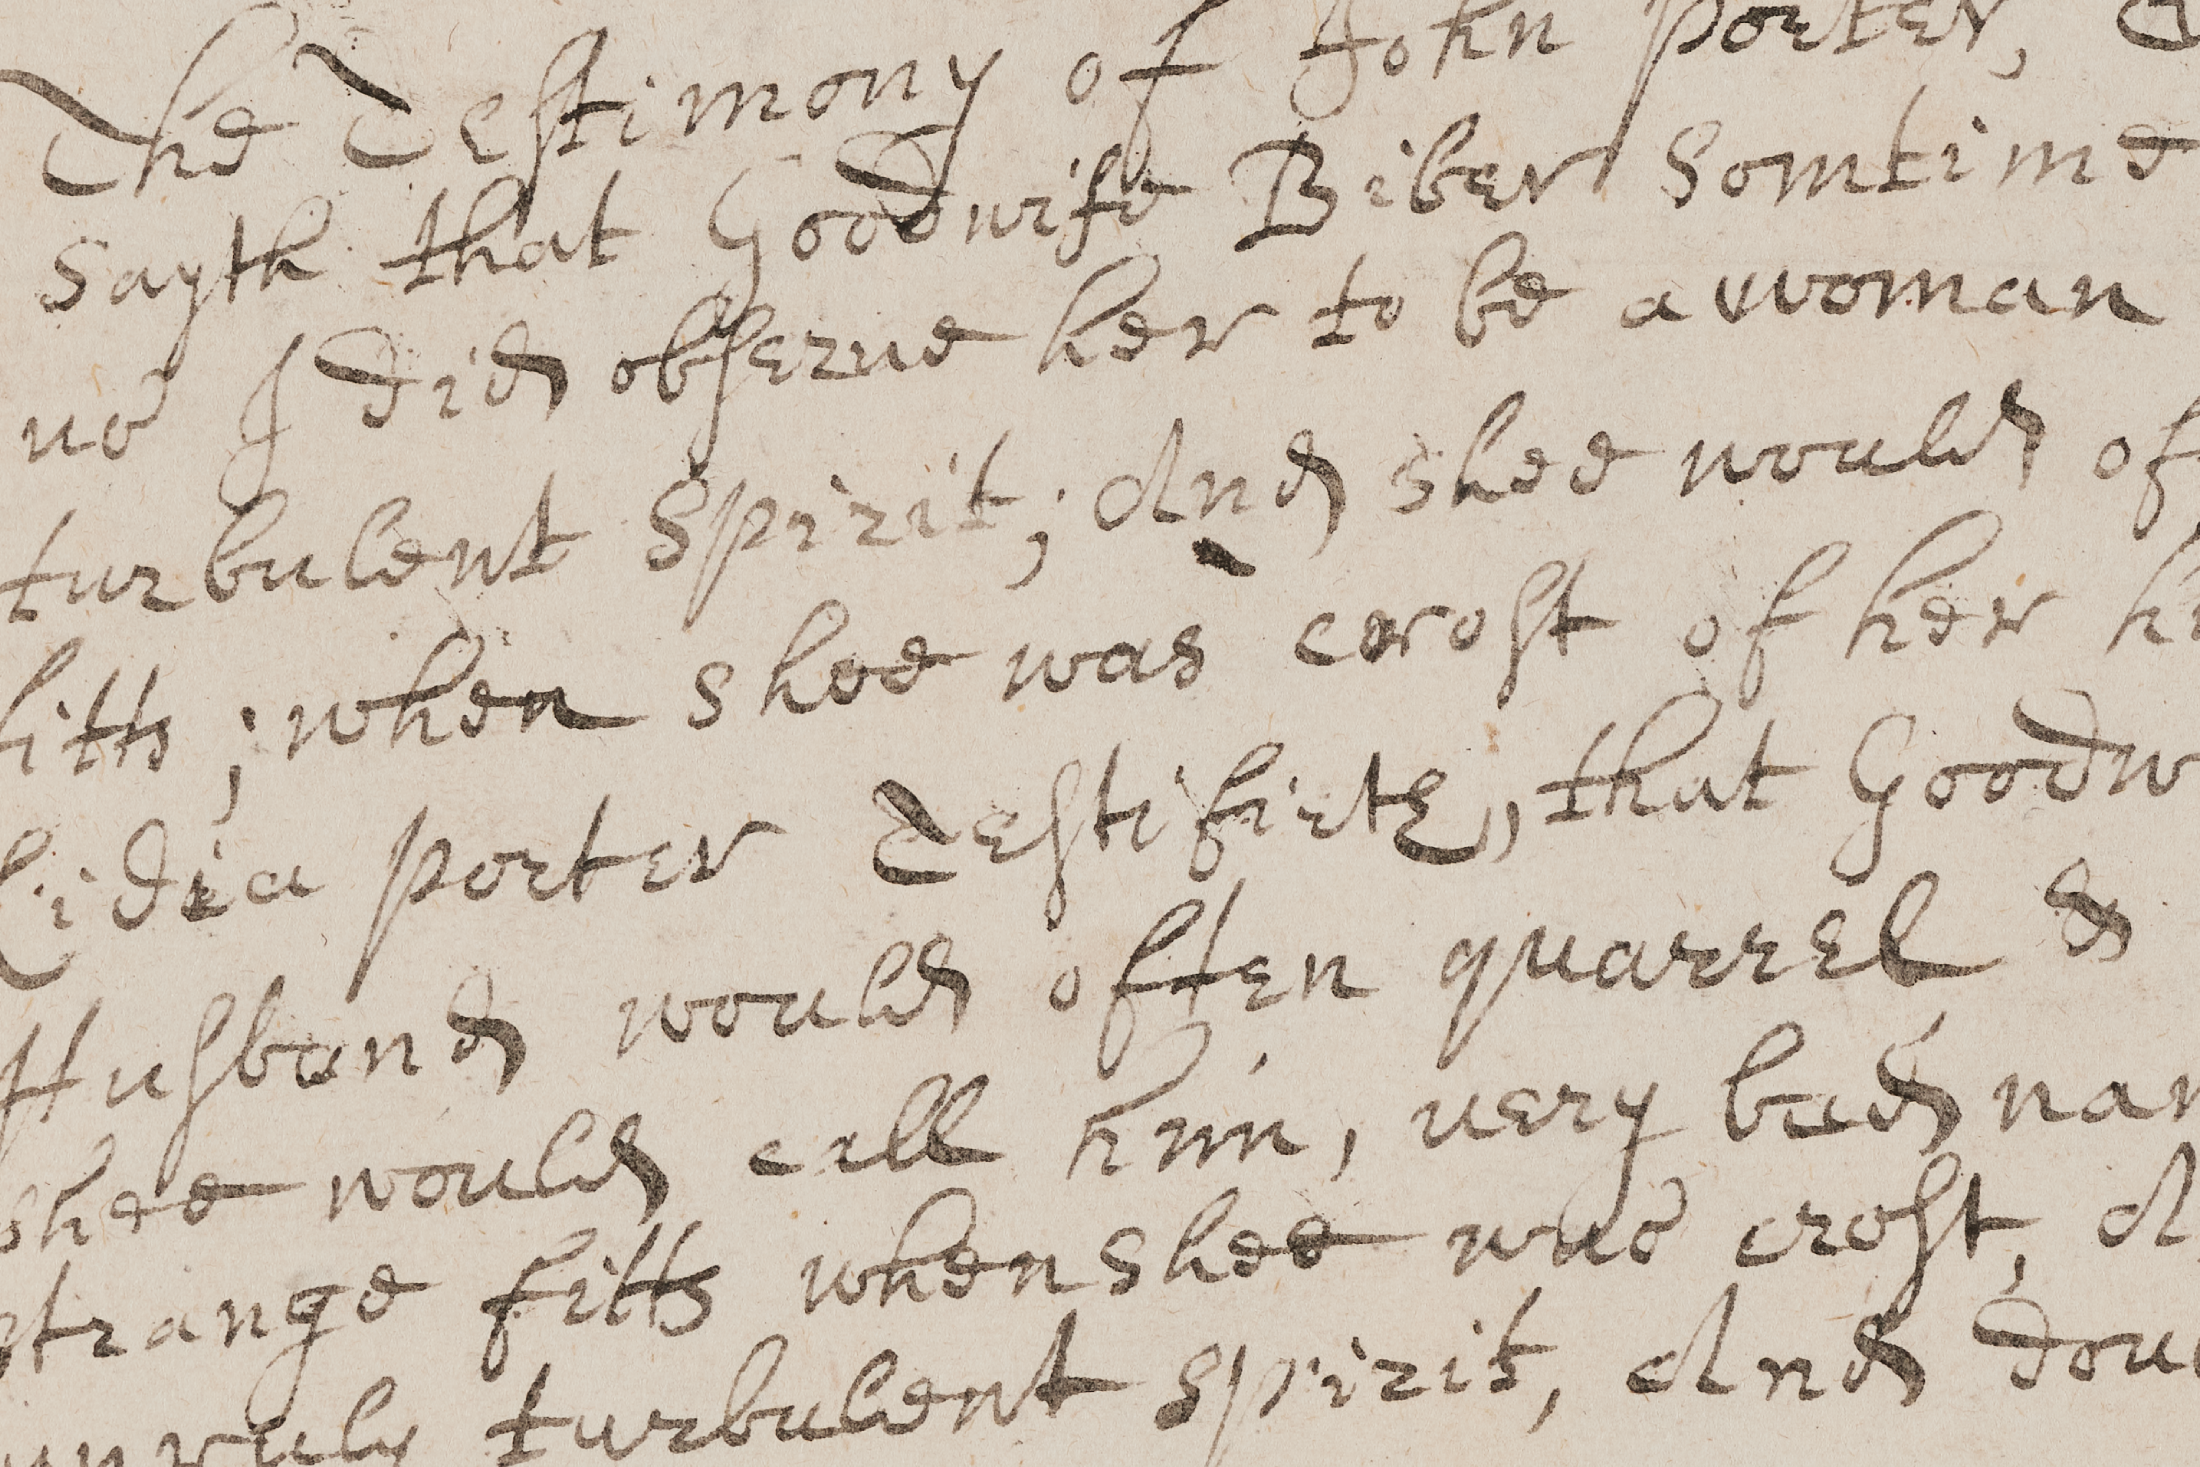 The Testimony of John porter,
Sayth that Goodwife Biber Somtime
us I did obserue her to be a woman
turbulent Spirit; And shee would of
fitts; when shee was crost of her
Lidia porter Testifieth, that Goodw
Husband would often quarrel &
shee would call him, very bad nam
strange fitts when shee was crost, A
unruly turbulent spirit, And doub